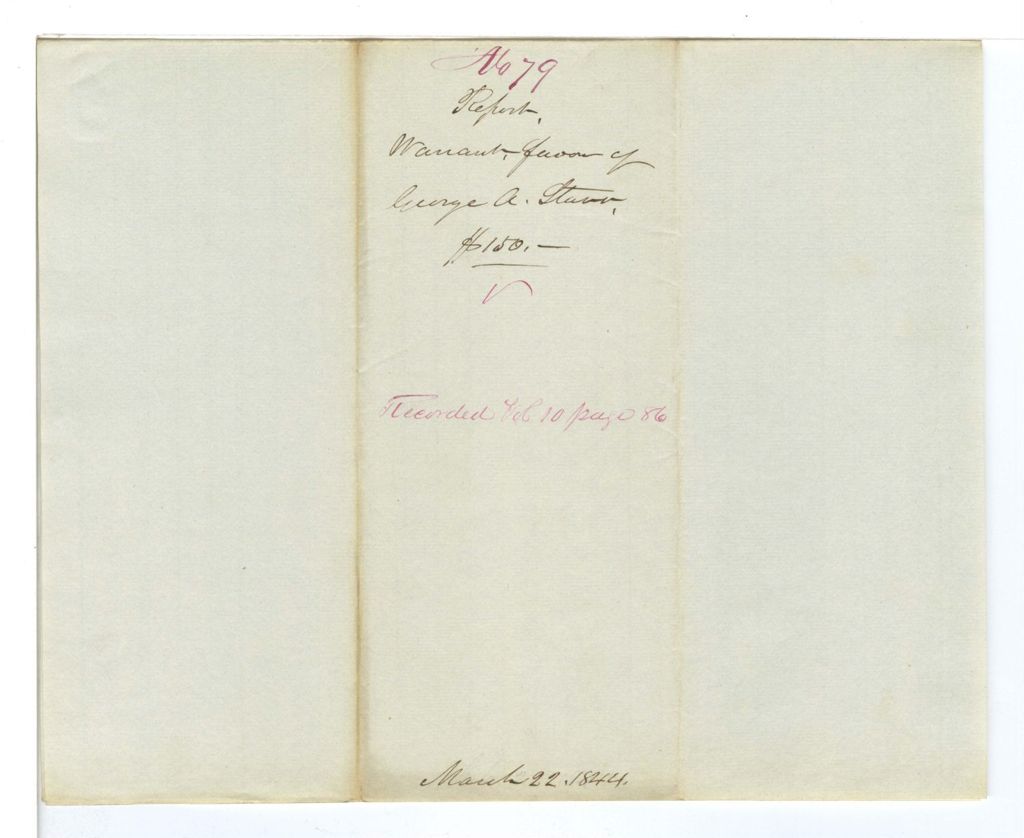 No 79
Report,
Warrant, favor of
George A. Starr,
$150.—
Recorded Vol 10 page 86
March 22. 1844.